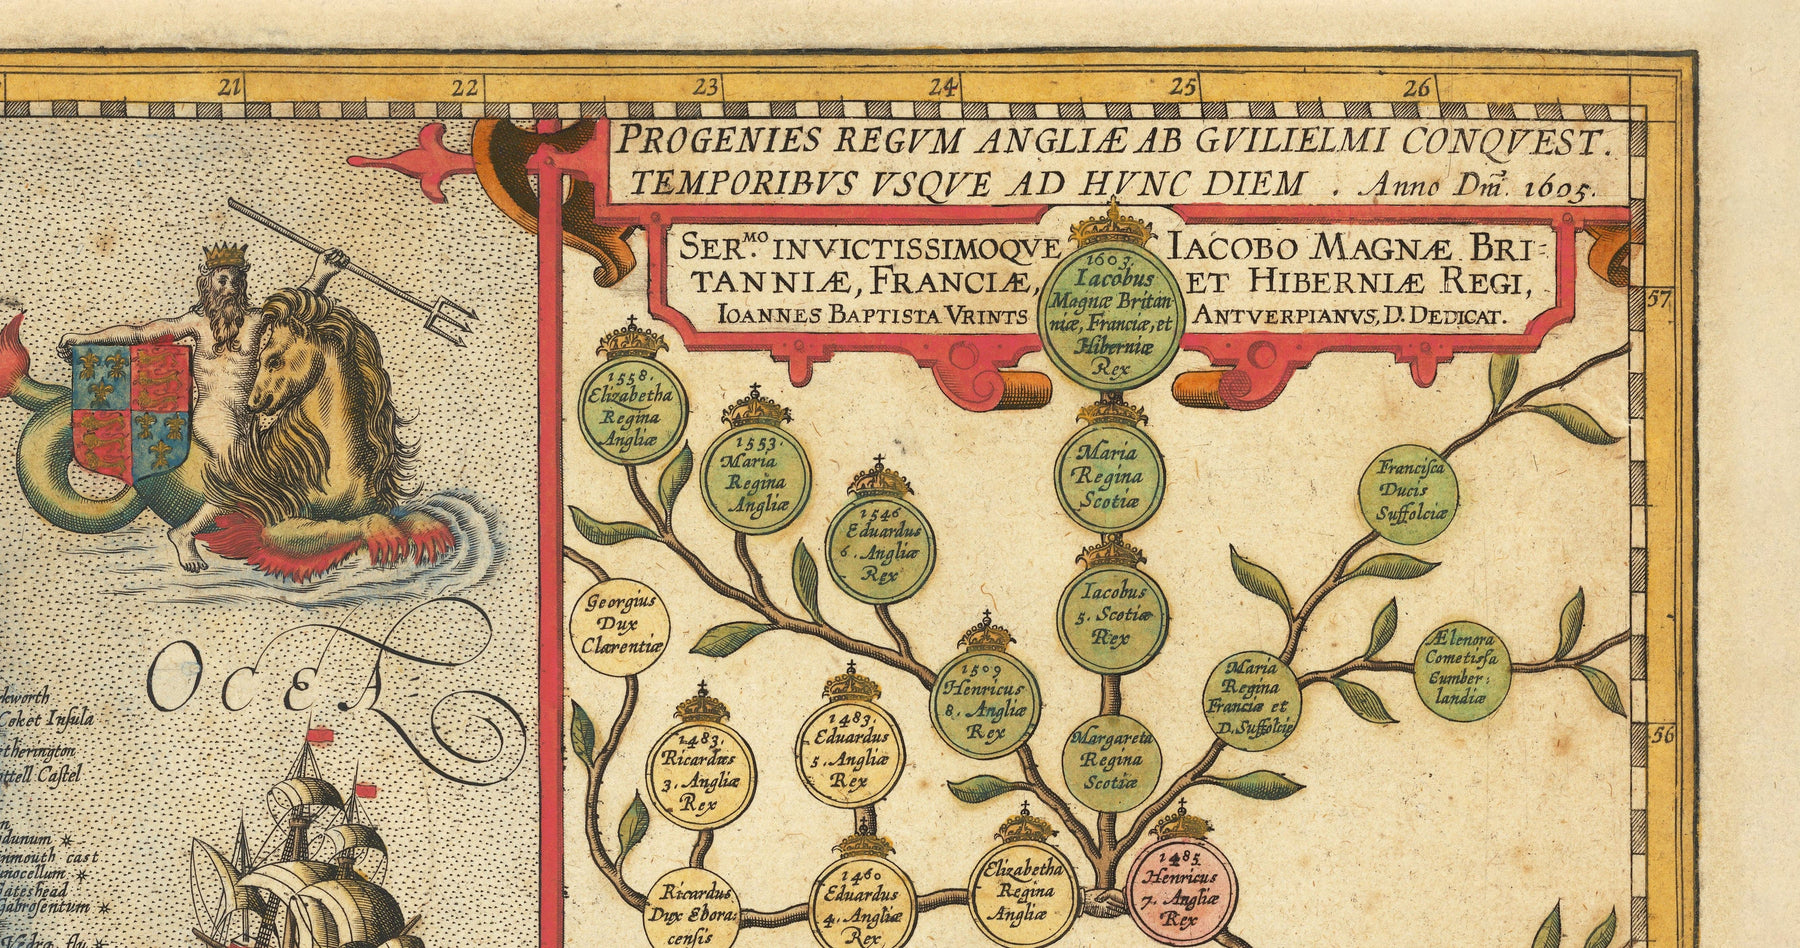 21 22 23 24 25 26
PROGENIES REGVM ANGLIÆ AB GVILIELMI CONQVEST.
TEMPORIBVS VSQVE AD HVNC DIEM. Anno Dm̃. 1605.
SER.MO INVICTISSIMOQVE IACOBO MAGNÆ BRI-
TANNIÆ, FRANCIÆ, ET HIBERNIÆ REGI,
IOANNES BAPTISTA VRINTS ANTVERPIANVS, D. DEDICAT.
57
1603.
Iacobus
Magnæ Britan
niæ, Franciæ, et
Hiberniæ
Rex
1558.
Elizabetha
Regina
Angliæ
1553.
Maria
Regina
Angliæ
Maria
Regina
Scotiæ
Francisca
Ducis
Suffolciæ
1546
Eduardus
6. Angliæ
Rex
Georgius
Dux
Clarentiæ
Iacobus
5. Scotiæ
Rex
Ælenora
Cometissa
Cumber:
landiæ
1509
Henricus
8. Angliæ
Rex
Maria
Regina
Franciæ et
D. Suffolciæ
OCEA
1483.
Ricardus
3. Angliæ
Rex
1483.
Eduardus
5. Angliæ
Rex
Margareta
Regina
Scotiæ
56
ckworth
Coket Insula
therington
ttell Castel
dunum
nmouth cast
nocellum
Gateshead
Gabrosentum
Vedra flu
Ricardus
Dux Ebora:
censis
1460
Eduardus
4. Angliæ
Rex
Elizabetha
Regina
Angliæ
1485.
Henricus
7. Angliæ
Rex